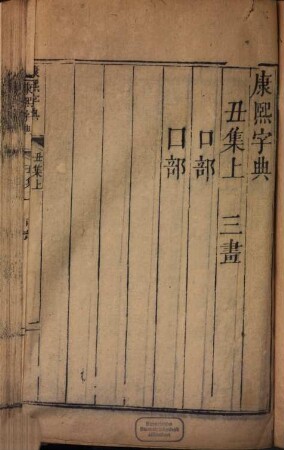 康熙字典
丑集上　三畫
口部
囗部
康熙字典
丑集上